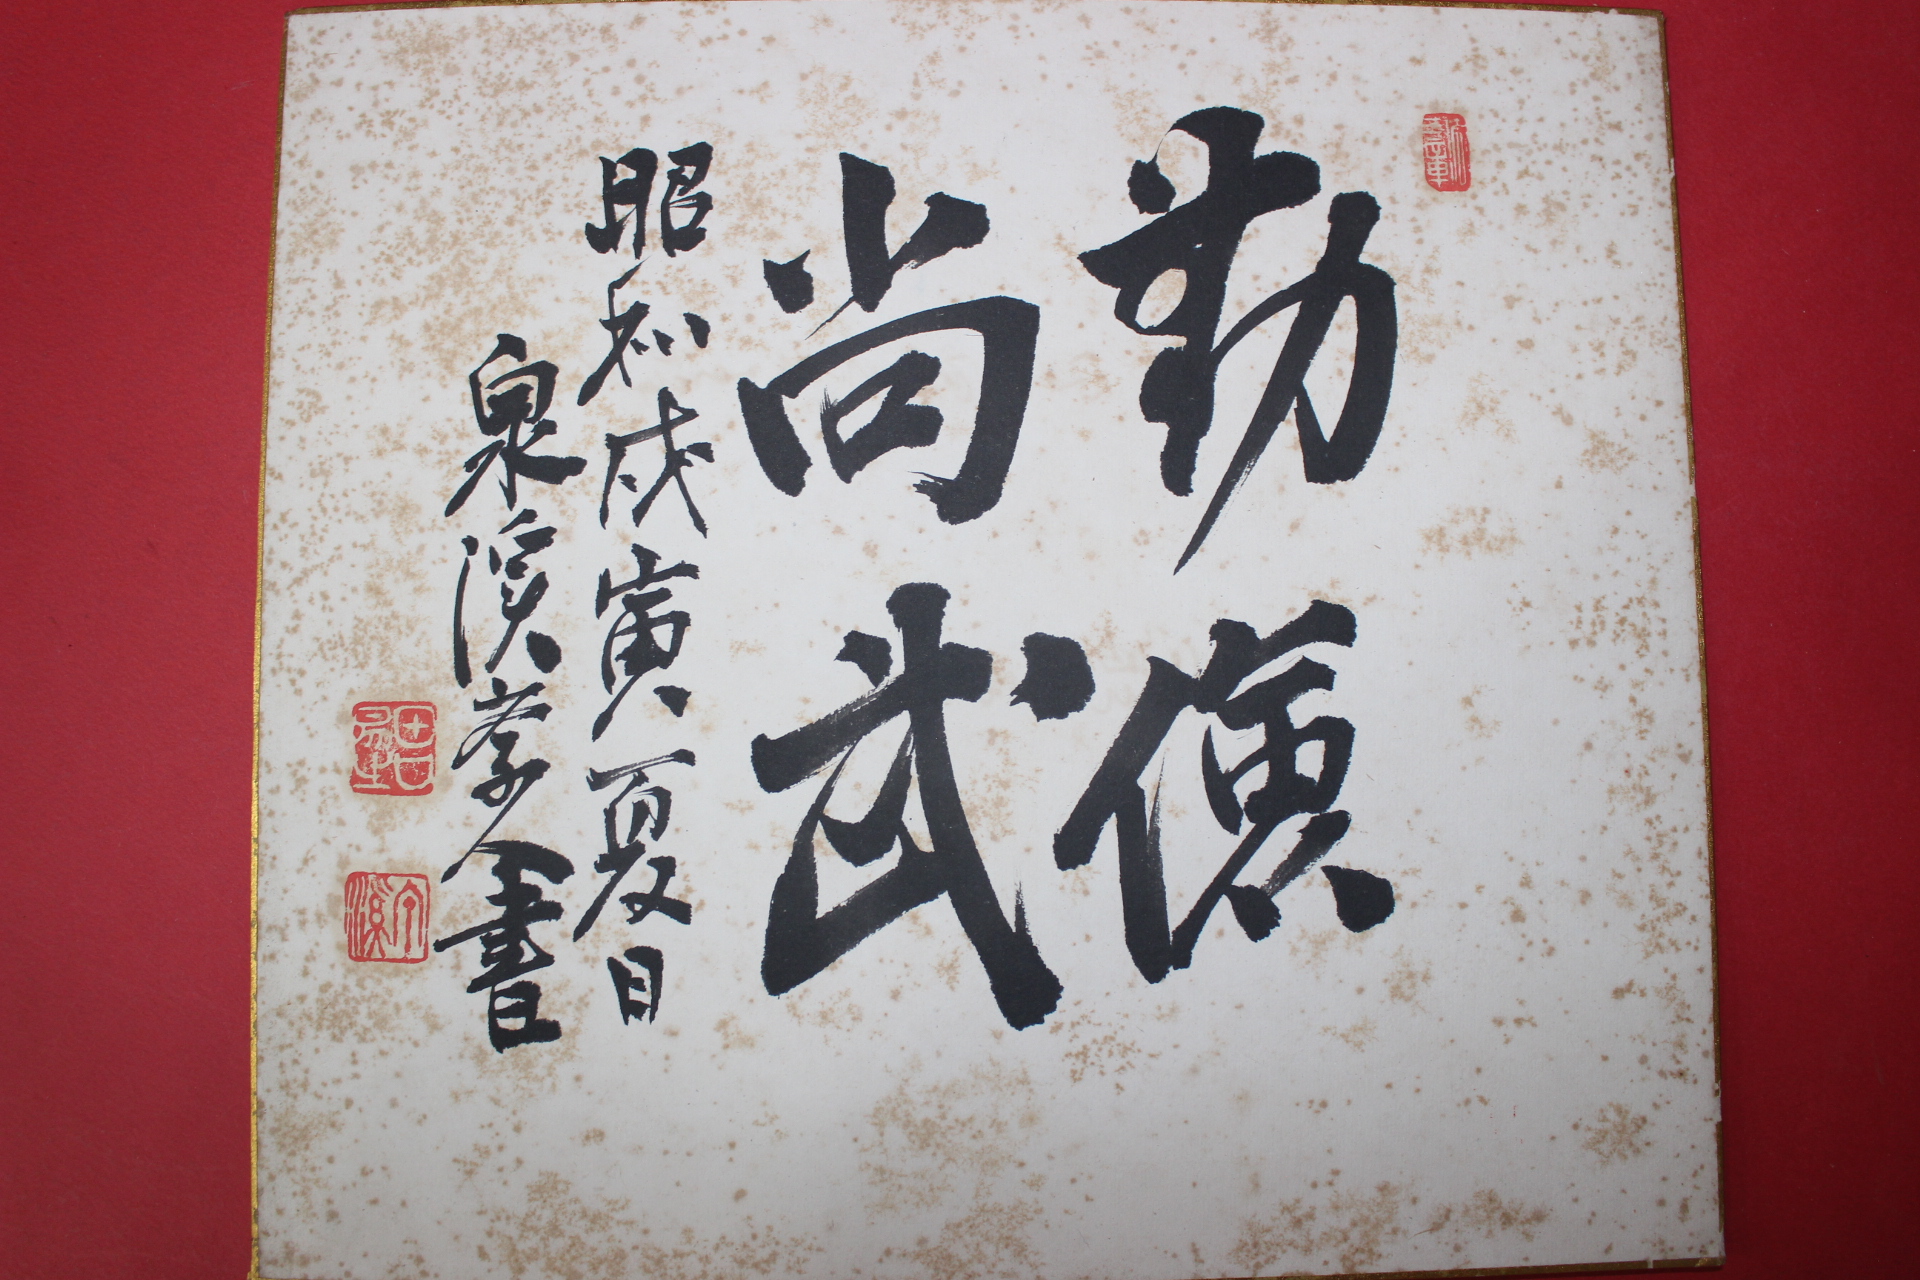 勤倹
尚武
昭和戊寅夏日
泉渓孝書